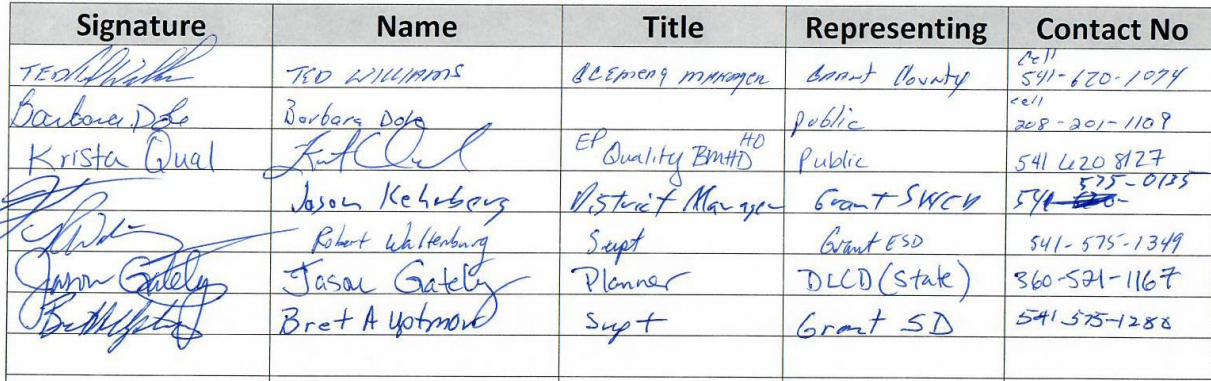 Signature Name Title Representing Contact No
TED WILLIAMS Grant County cell 541-620-1074
Barbara Dole Barbara Dole public cell 208-201-1109
Krista Qual EP Quality BMHD HD Public 541 620 8127
Jason Kehrberg District Manager Grant SWCD 541 575-0135
Robert Waltenburg Supt Grant ESD 541-575-1349
Jason Gately Jason Gately Planner DLCD (State) 360-521-1167
Bret A Uptmor Supt Grant SD 541 575-1288